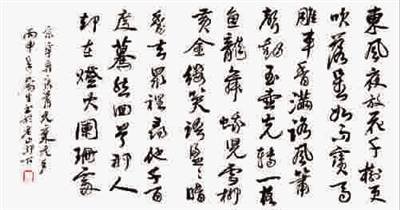 東風夜放花千樹更
吹落星如雨寶馬
雕車香滿路鳳簫
聲動玉壺光轉一夜
魚龍舞蛾兒雪柳
黃金縷笑語盈盈暗
香去眾裡尋他千百
度驀然回首那人
却在燈火闌珊處
宋辛棄疾
丙申